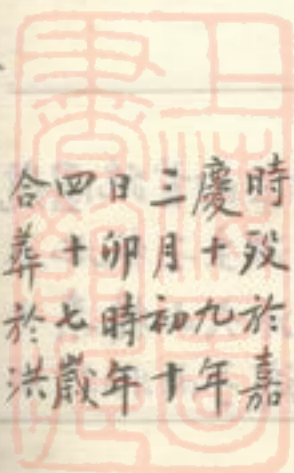 時歿於嘉
慶十九年
三月初十
日卯時年
四十七歲
合葬於洪